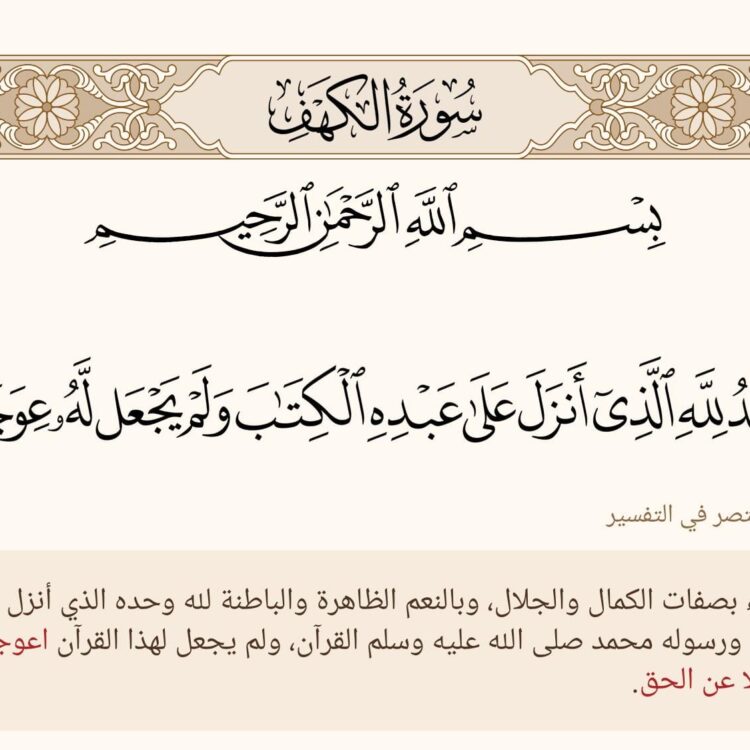 سُورَةُ الكَهۡفِ
بِسۡمِ ٱللَّهِ ٱلرَّحۡمَٰنِ ٱلرَّحِيمِ
لِلَّهِ ٱلَّذِيٓ أَنزَلَ عَلَىٰ عَبۡدِهِ ٱلۡكِتَٰبَ وَلَمۡ يَجۡعَل لَّهُۥ
في التفسير
بصفات الكمال والجلال، وبالنعم الظاهرة والباطنة لله وحده الذي أنزل
ورسوله محمد صلى الله عليه وسلم القرآن، ولم يجعل لهذا القرآن
عن الحق.